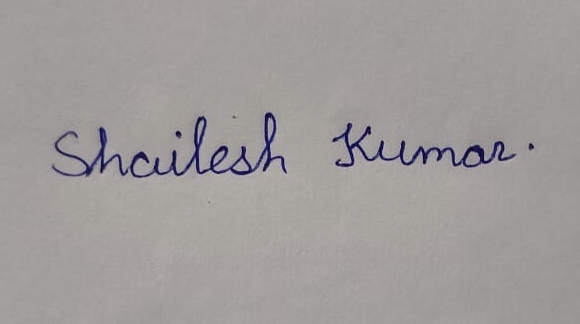 Shailesh Kumar.